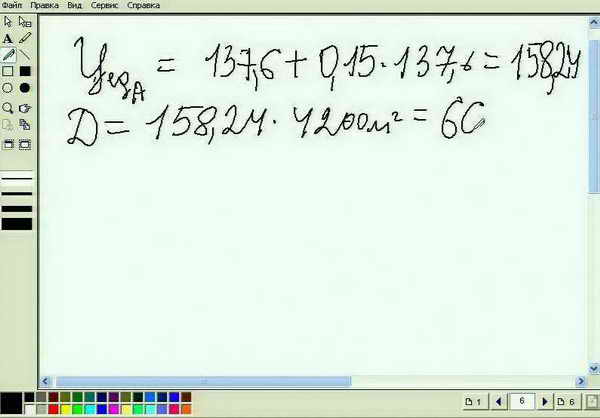 Файл Правка Вид Сервис Справка
Ц ед А = 137,6 + 0,15 · 137,6 = 158,24
Д = 158,24 · 4200 м² = 66
1 6 6